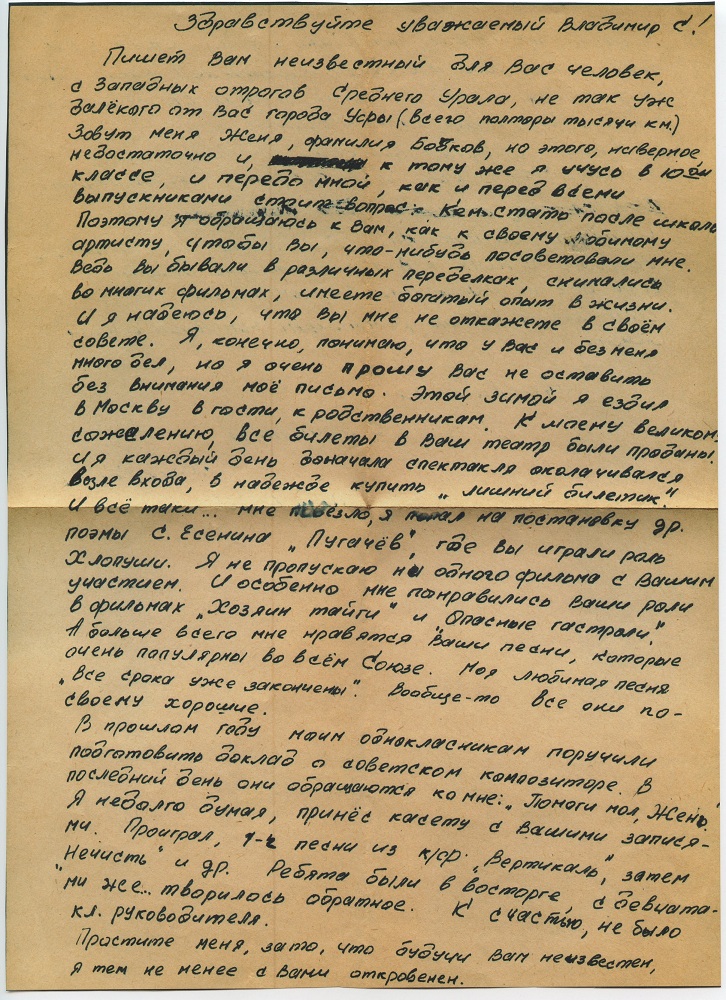 Здравствуйте уважаемый Владимир С!
Пишет Вам неизвестный для Вас человек,
с Западных отрогов Среднего Урала, не так уж
далёкого от Вас города Усры (всего полторы тысячи км.)
Зовут меня Женя, фамилия Бобков, но этого, наверное
недостаточно и, к тому же я учусь в 10ом
классе, и передо мной, как и перед всеми
выпускниками стоит вопрос: Кем стать после школы
Поэтому я обращаюсь к Вам, как к своему любимому
артисту, чтобы Вы, что-нибудь посоветовали мне.
Ведь Вы бывали в различных переделках, снимались
во многих фильмах, имеете богатый опыт в жизни.
И я надеюсь, что Вы мне не откажете в своём
совете. Я, конечно, понимаю, что у Вас и без меня
много дел, но я очень прошу Вас не оставить
без внимания моё письмо. Этой зимой я ездил
в Москву в гости, к родственникам. К моему великому
сожелению, все билеты в Ваш театр были проданы!
И я каждый день доначала спектакля околачивался
возле входа, в надежде купить „лишний билетик."
И всё таки... мне повезло, я попал на постановку др.
поэмы С. Есенина „Пугачёв", где Вы играли роль
Хлопуши. Я не пропускаю ни одного фильма с Вашим
участием. И особенно мне понравились Ваши роли
в фильмах „Хозяин тайги" и „Опасные гастроли."
А больше всего мне нравятся Ваши песни, которые
очень популярны во всём Союзе. Моя любимая песня
„Все срока уже закончены". Вообще-то все они по-
своему хорошие.
В прошлом году моим однокласникам поручили
подготовить доклад о советском композиторе. В
последний день они обращаются ко мне: „Помоги мол, Жень."
Я недолго думая, принёс касету с Вашими запися-
ми. Проиграл, 1-2 песни из к/ф. „Вертикаль", затем
„Нечисть" и др. Ребята были в восторге, с девчата-
ми же... творилось обратное. К счастью, не было
кл. руководителя.
Простите меня, зато, что будучи Вам неизвестен,
я тем не менее с Вами откровенен.